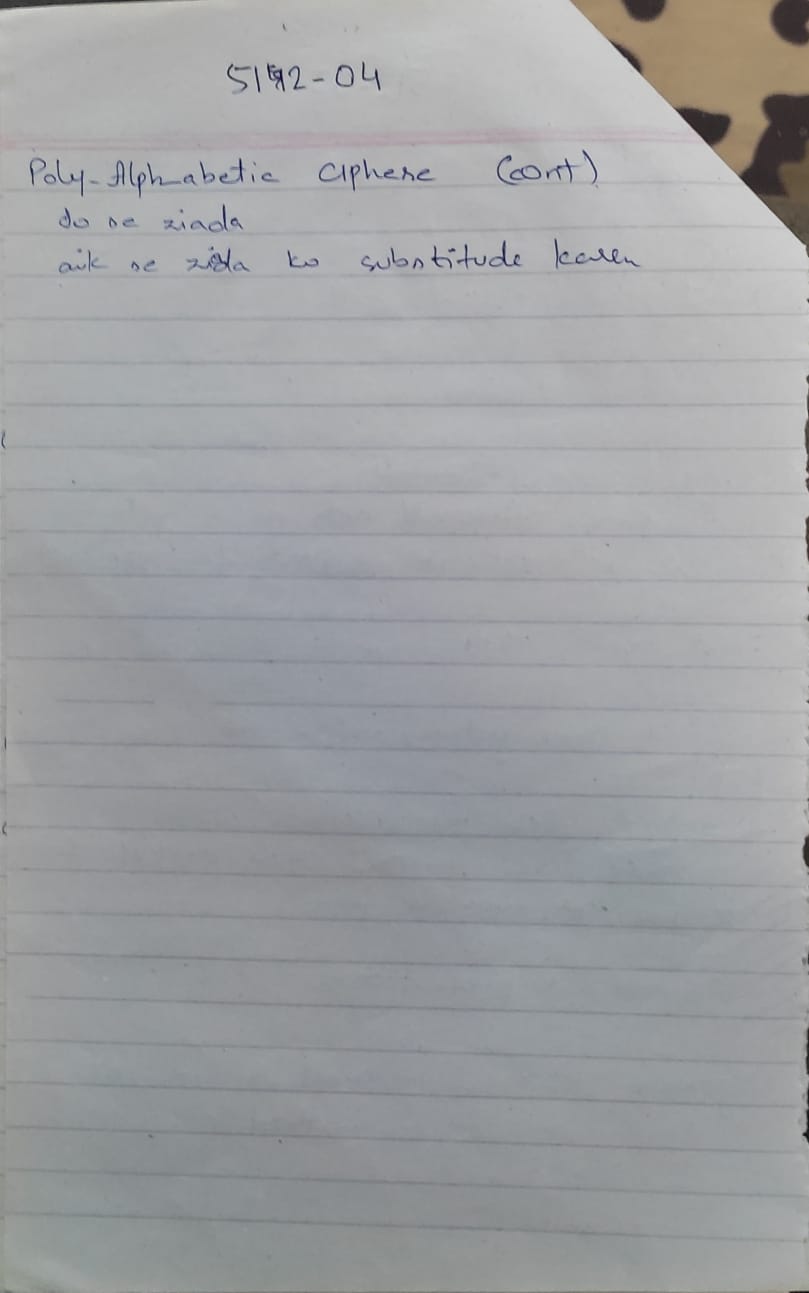 5192-04
Poly-Alphabetic Ciphere (cont)
do se ziada
aik se zida ko substitude karen